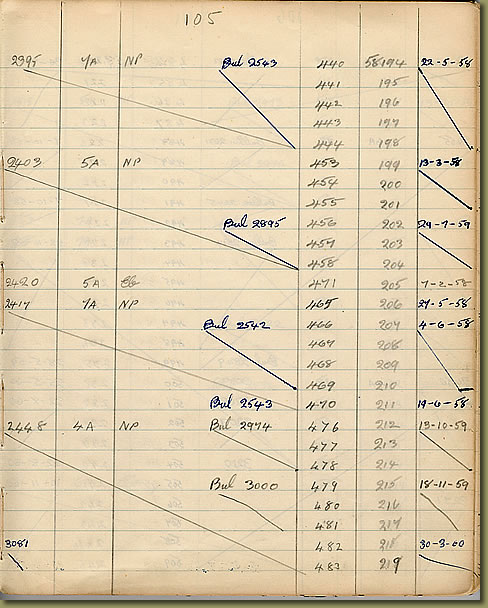 105
2395 7A NP Bul 2543 440 58194 22-5-58
441 195
442 196
443 197
444 198
2403 5A NP 453 199 13-3-58
454 200
455 201
Bul 2895 456 202 29-7-59
457 203
458 204
2420 5A 471 205 7-2-58
2417 7A NP 465 206 27-5-58
Bul 2542 466 207 4-6-58
467 208
468 209
469 210
Bul 2543 470 211 19-6-58
2448 4A NP Bul 2974 476 212 13-10-59
477 213
478 214
Bul 3000 479 215 18-11-59
480 216
481 217
3081 482 218 30-3-60
483 219